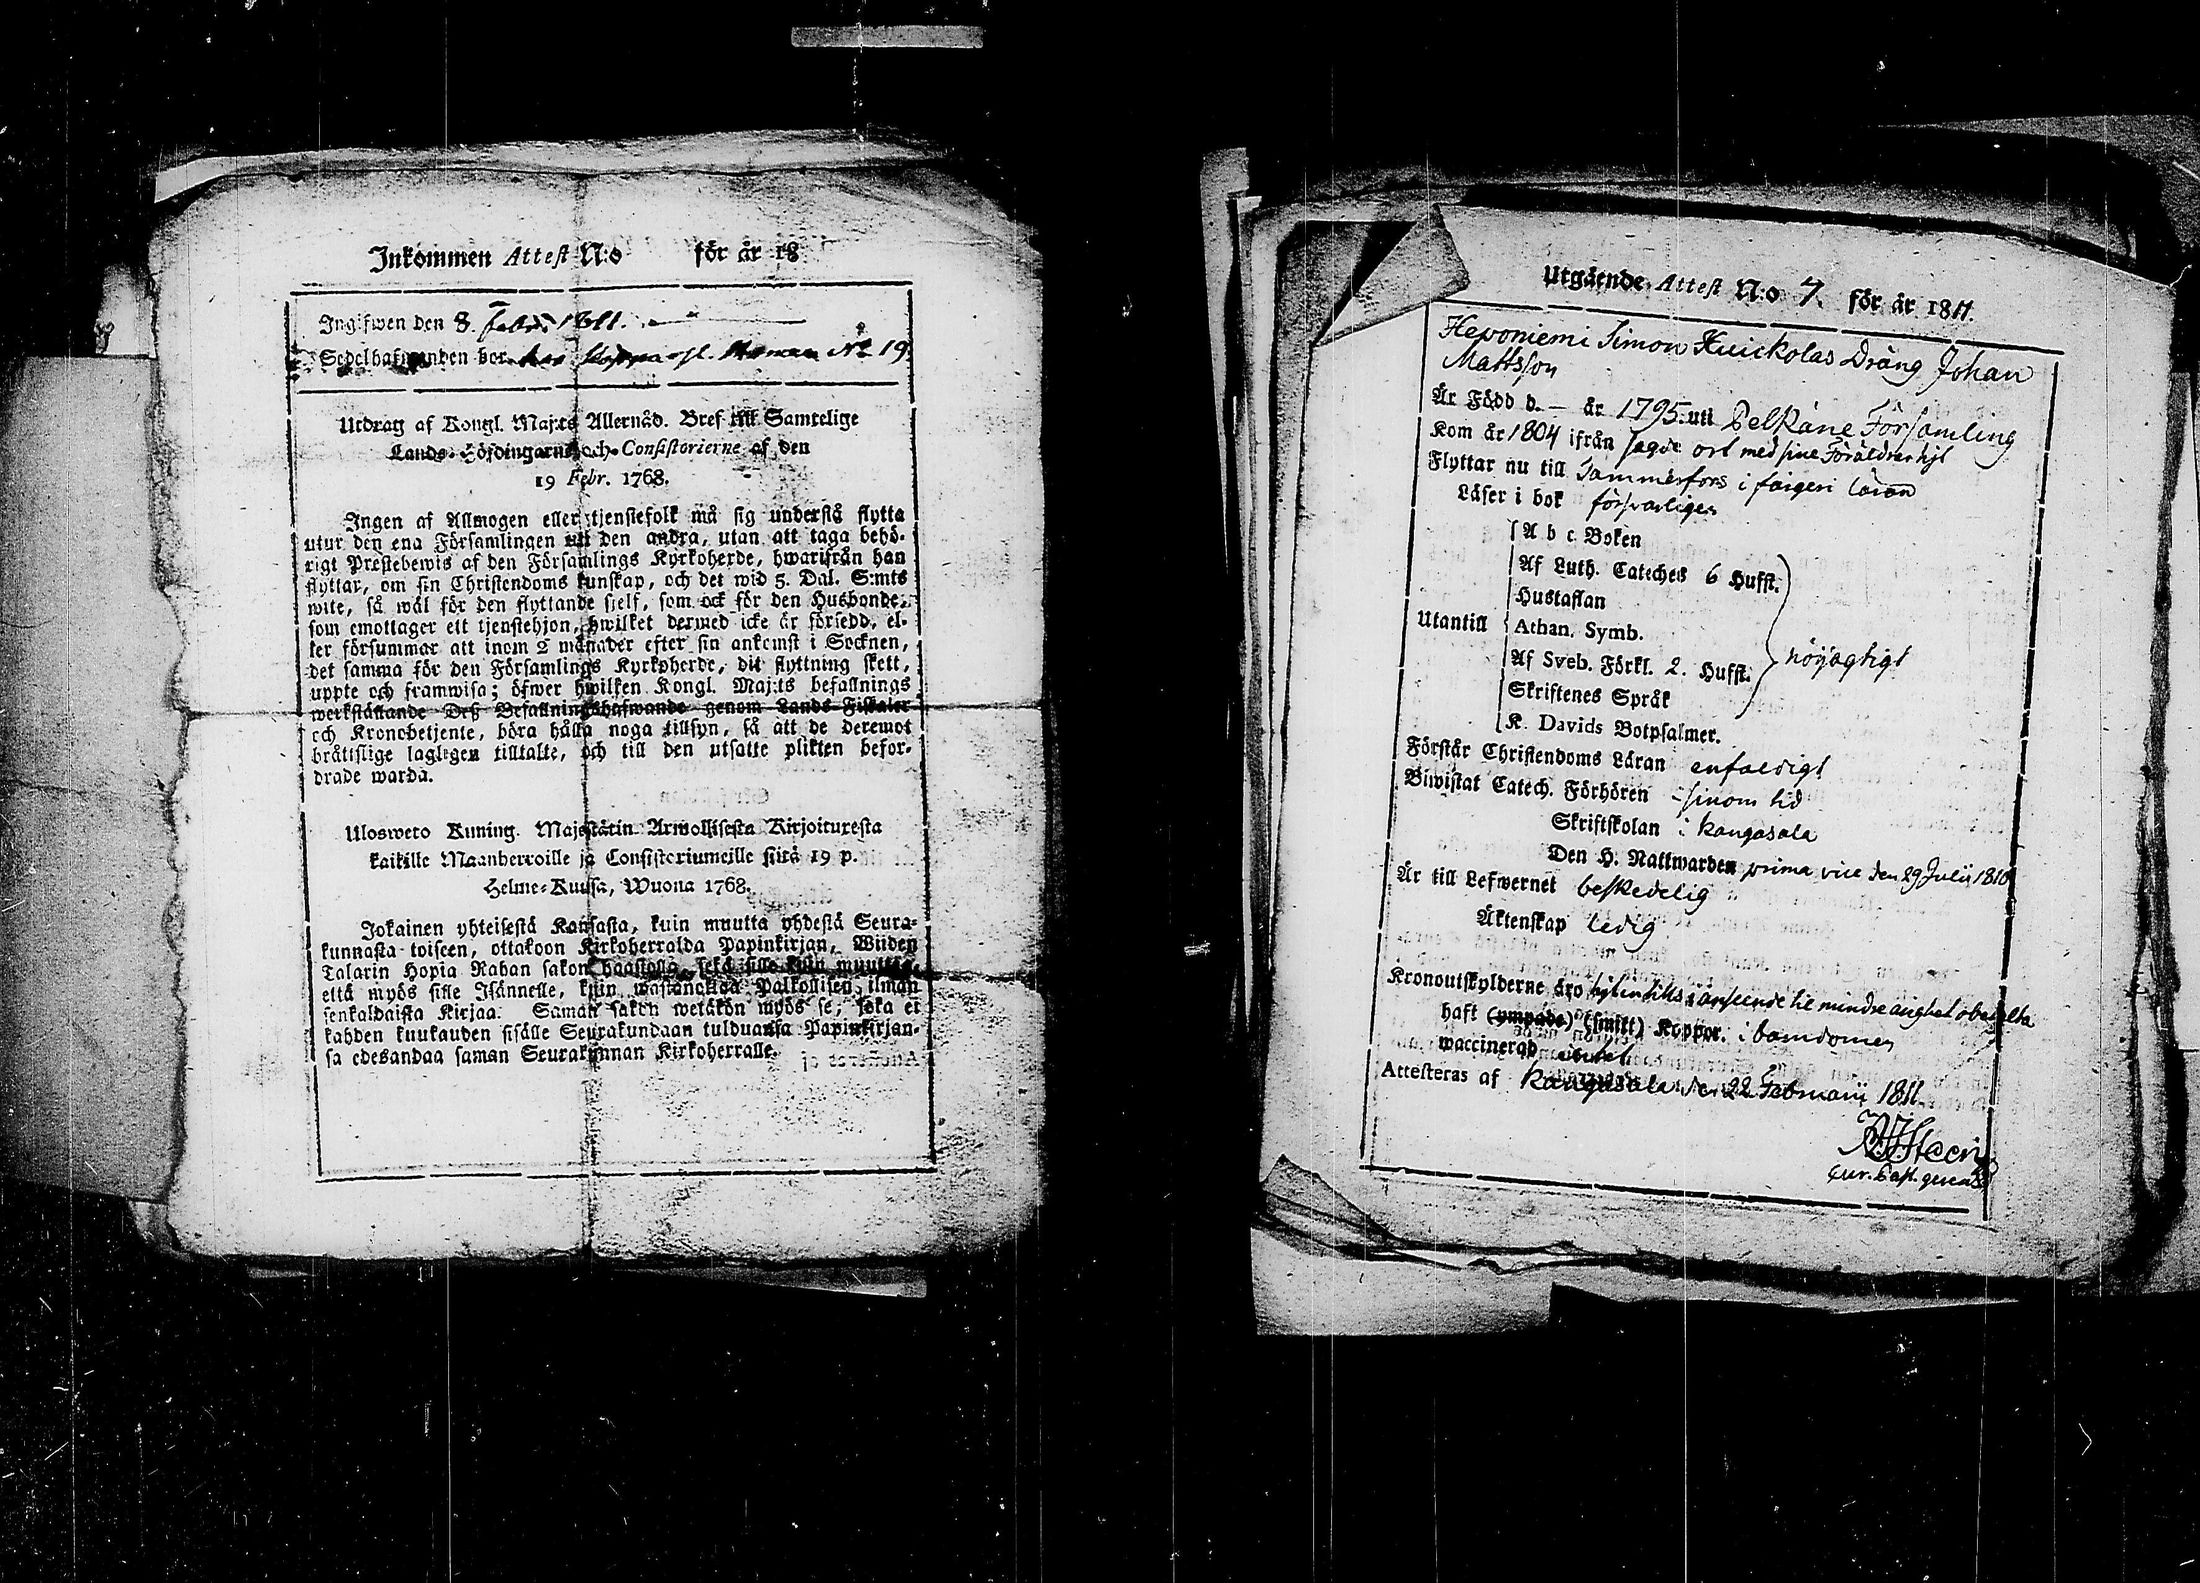 Inkommen Attest N:o för år 18
Ingifwen den 8. Febr. 1811.
Sedelhafwanden bor hos N:o 19.
Utdrag af Kongl. Maj:ts Allernåd. Bref till Samtelige
Lands-Höfdingarne och Consistorierne af den
19 Febr. 1768.
Ingen af Allmogen eller tjenstefolk må sig understå flytta
utur den ena Församlingen uti den andra, utan att taga behö-
rigt Prestebewis af den Församlings Kyrkoherde, hwarifrån han
flyttar, om sin Christendoms kunskap, och det wid 5. Dal. S:mts
wite, så wäl för den flyttande sjelf, som ock för den Husbonde,
som emottager ett tjenstehjon, hwilket dermed icke är försedd, el-
ler försummar att inom 2 månader efter sin ankomst i Socknen,
det samma för den Församlings Kyrkoherde, dit flyttning skett,
uppte och framwisa; öfwer hwilken Kongl. Maj:ts befallnings
werkställande Deß Befallningshafwande genom Lands Fiskaler
och Kronobetjente, böra hålla noga tillsyn, så att de deremot
bråtislige lagligen tilltalte, och till den utsatte plikten befor-
drade warda.
Ulosweto Kuning. Majestätin Armollisesta Kirjoituxesta
kaikille Maanherroille ja Consistoriumeille siitä 19 p.
Helme-Kuusa, Wuona 1768.
Jokainen yhteisestä Kansasta, kuin muutta yhdestä Seura-
kunnasta toiseen, ottakoon Kirkoherralda Papinkirjan, Wiiden
Talarin Hopia Rahan sakon haastolla, sekä sille kuin muuttaa,
että myös sille Isännelle, kuin wastanottaa Palkollisen, ilman
senkaldaista Kirjaa. Saman sakon wetäkön myös se, joka ei
kahden kuukauden sisälle Seurakundaan tulduansa Papinkirjan-
sa edesandaa saman Seurakunnan Kirkoherralle.
Utgående Attest N:o 7. för år 1811.
Heponiemi Simon Kuickolas Dräng Johan
Mattsson
Är Född d. — år 1795. uti Pelkäne Församling
Kom år 1804 ifrån sagde ort med sine Föräldrar hit
Flyttar nu till Tammerfors i färgeri läran
Läser i bok försvarligen
A b c Boken
Af Luth. Cateches 6 Hufst.
Hustaflan
Utantill Athan. Symb.
Af Sveb. Förkl. 2. Hufst. nöjagtigt
Skriftenes Språk
K. Davids Botpsalmer.
Förstår Christendoms Läran enfaldigt
Biwistat Catech. Förhören i sinom tid
Skriftskolan i Kangasala
Den H. Nattwarden prima vice den 29 Julii 1810
Är till Lefwernet beskedelig
Äktenskap ledig
Kronoutskylderne äro hit intills i anseende til mindre årighet obetalta
haft (ympade) (smitt) Koppor. i barndomen
waccinerad
Attesteras af Kangasala den 22 Februarii 1811